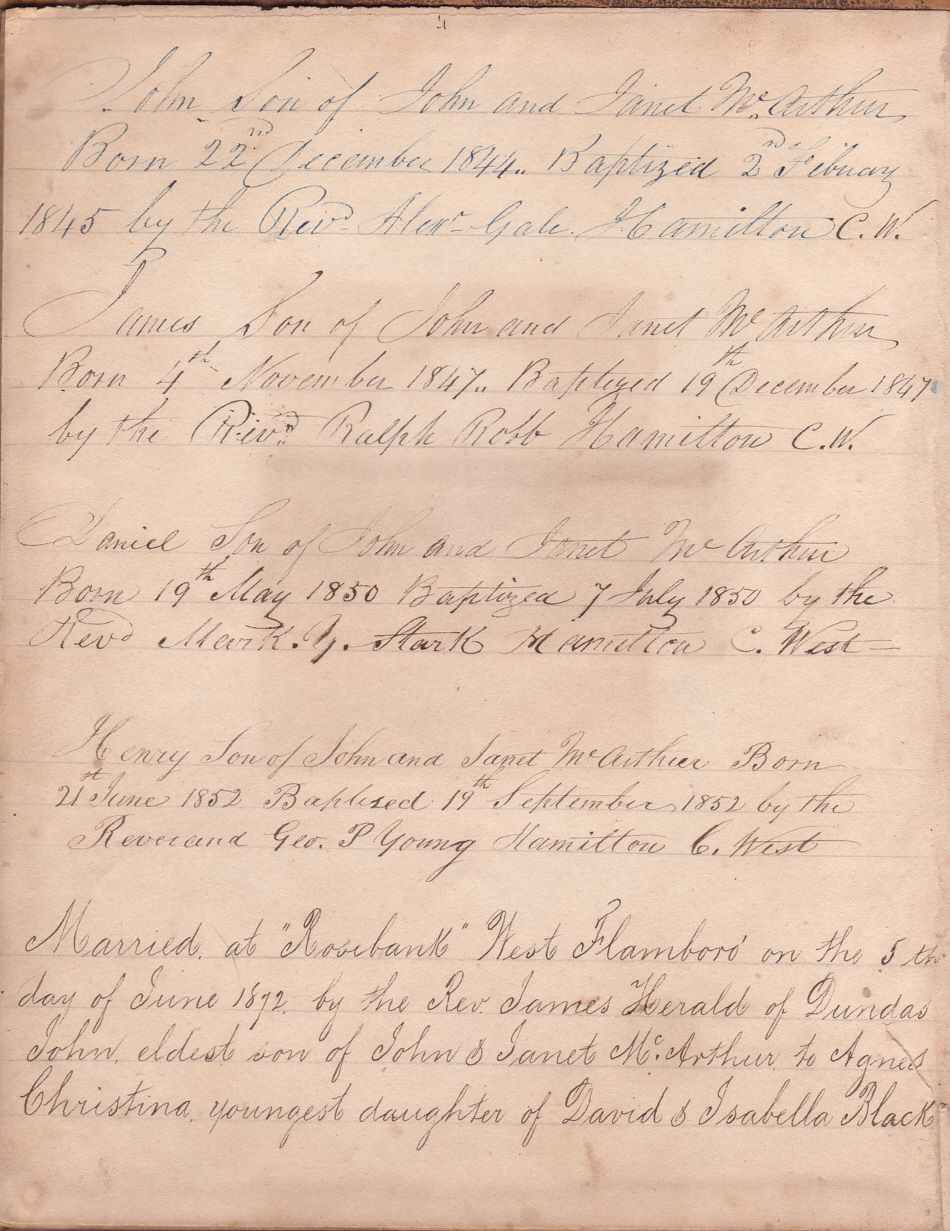 4
John Son of John and Janet Mc Arthur
Born 22nd December 1844.. Baptized 2nd Febuary
1845 by the Revd Alexr Gale Hamilton C.W.
James Son of John and Janet Mc Arthur
Born 4th November 1847.. Baptized 19th December 1847
by the Revd Ralph Robb Hamilton C.W.
Daniel Son of John and Janet Mc Arthur
Born 19th May 1850 Baptized 7 July 1850 by the
Revd Mark. Y. Stark Hamilton C. West
Henry Son of John and Janet Mc Arthur Born
21st June 1852 Baptized 19th September 1852 by the
Reverand Geo. P Young Hamilton C. West
Married, at "Rosebank" West Flamboro' on the 5th
day of June 1872, by the Rev. James Herald of Dundas
John, eldest son of John & Janet Mc. Arthur, to Agnes
Christina, youngest daughter of David & Isabella Black